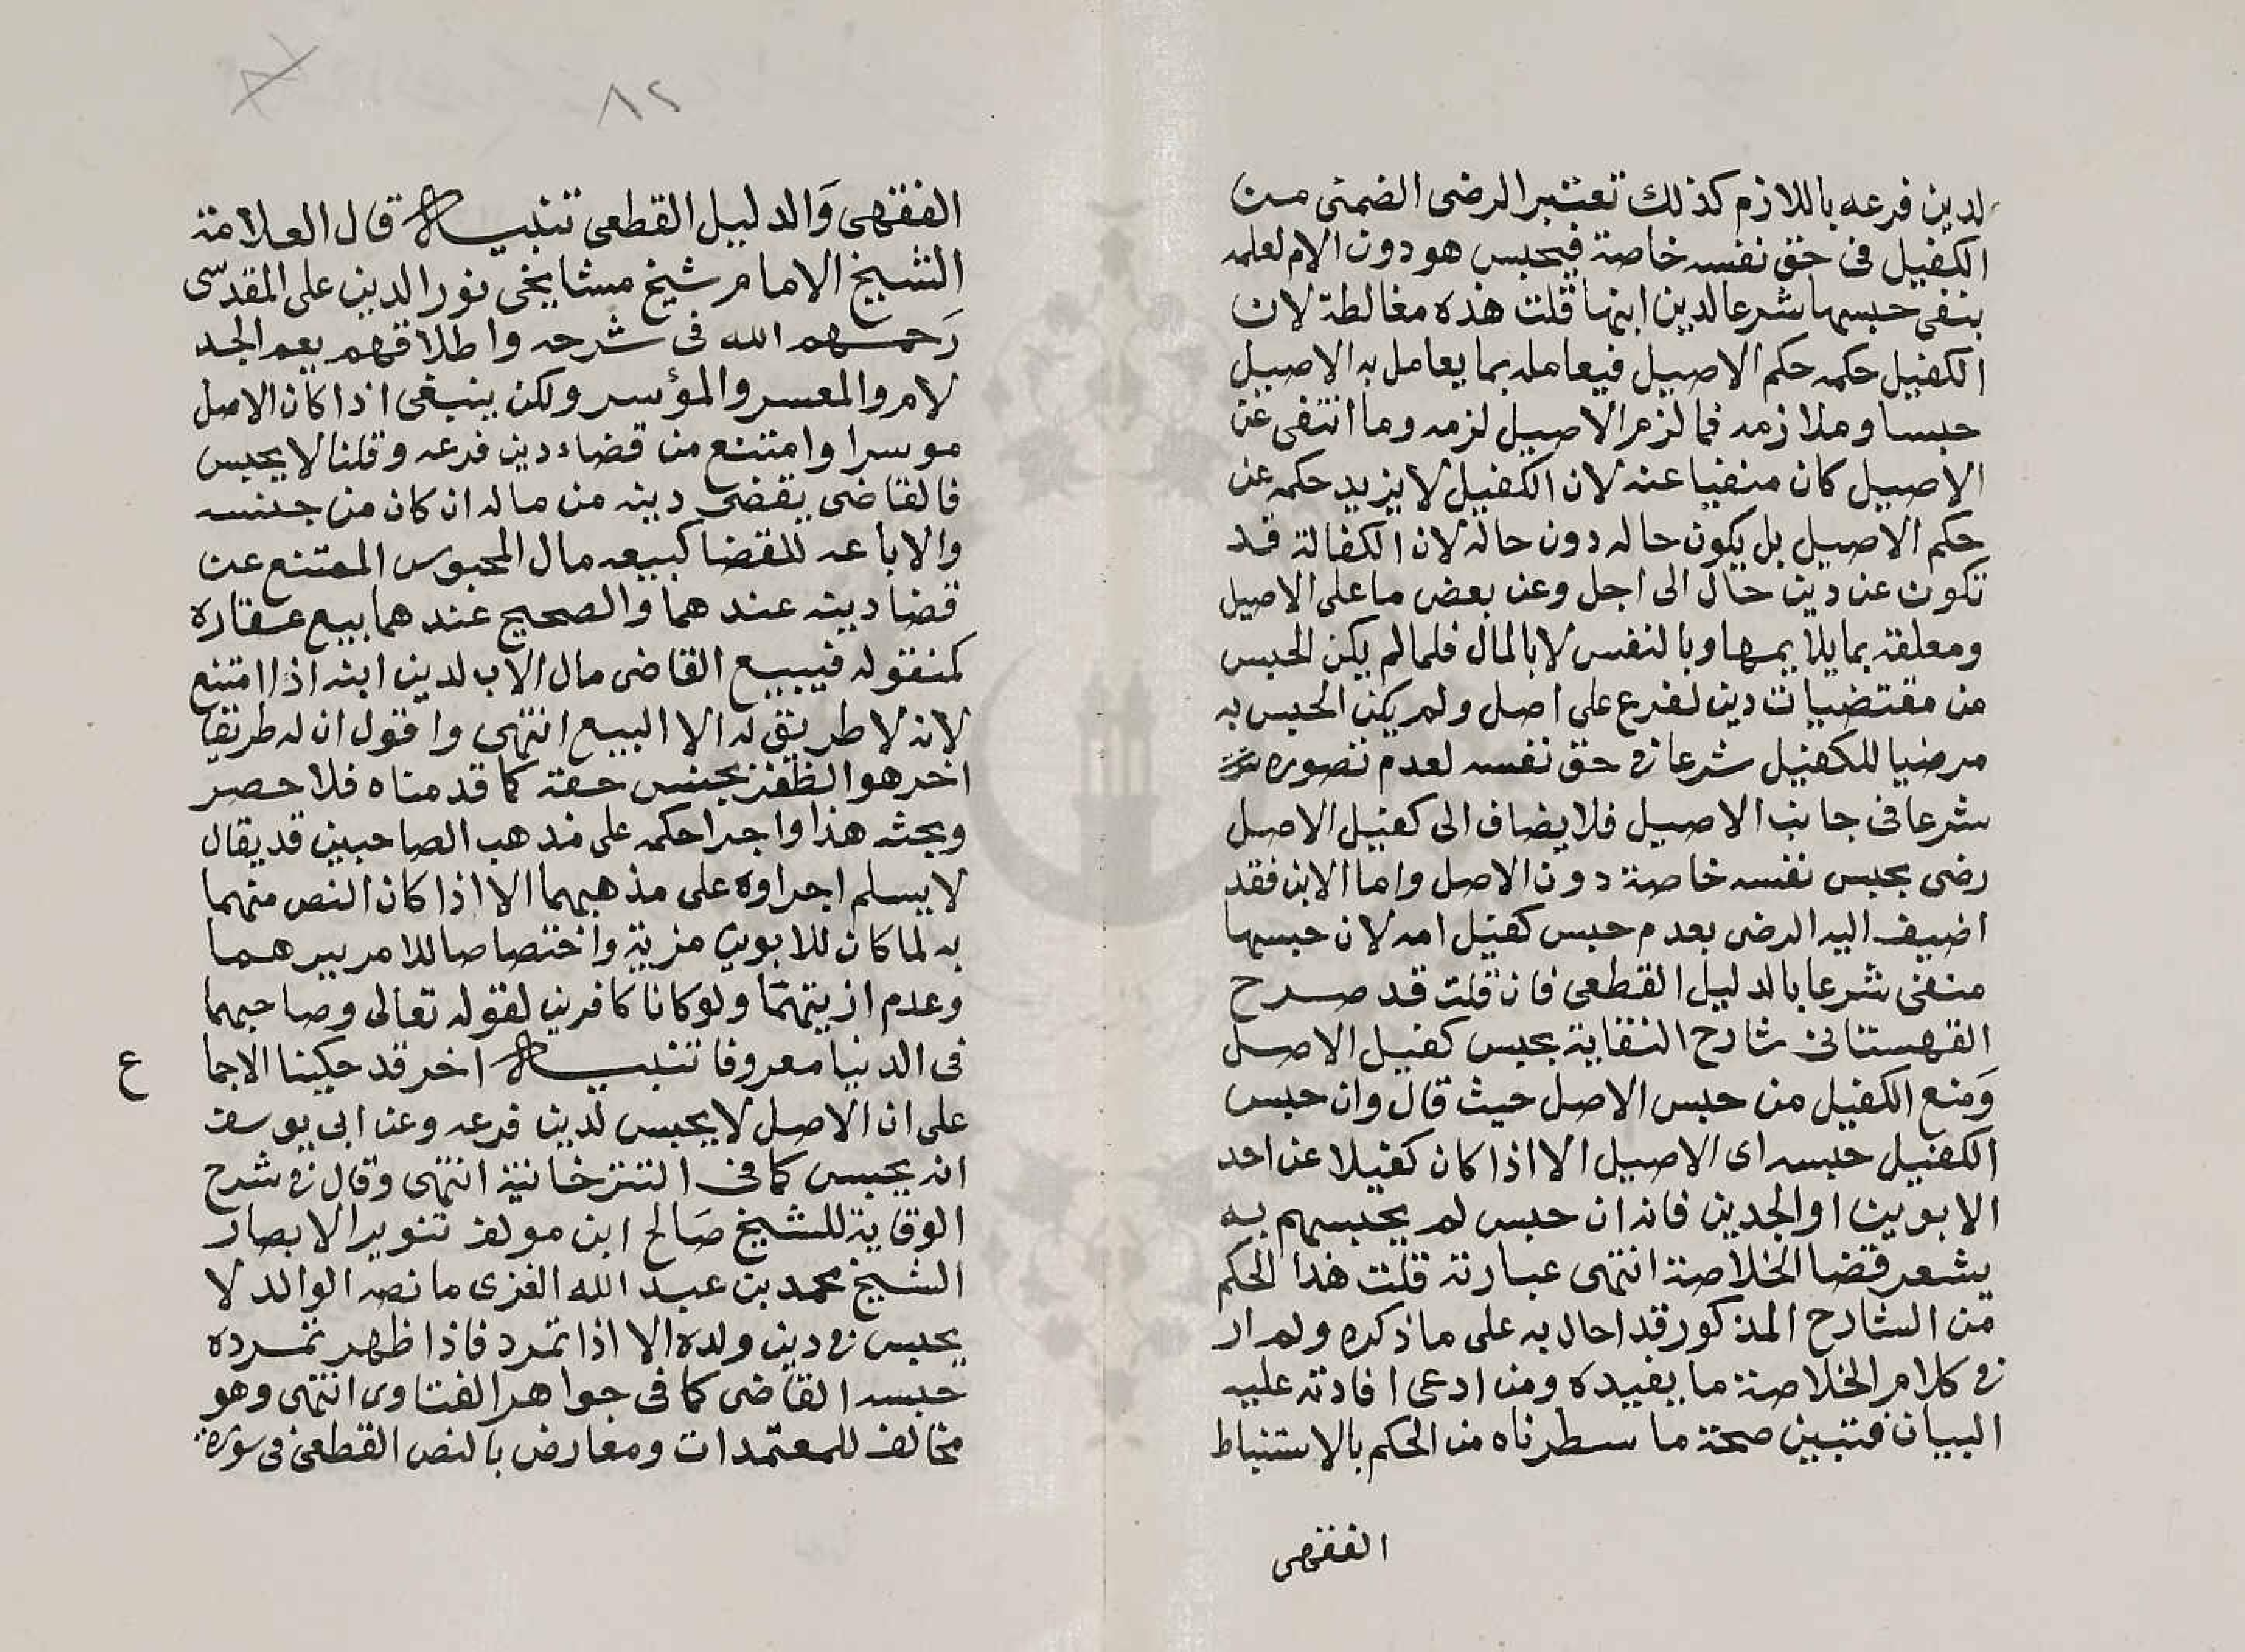 لدين فرعه باللازم كذلك تعتبر الرضى الضمنى من
الكفيل فى حق نفسه خاصة فيحبس هو دون الام لعلمه
بنفى حبسها شرعا لدين ابنها قلت هذه مغالطة لان
الكفيل حكمه حكم الاصيل فيعامله بما يعامل به الاصيل
حبسا وملازمه فما لزم الاصيل لزمه وما انتفى عن
الاصيل كان منفيا عنه لان الكفيل لا يزيد حكمه عن
حكم الاصيل بل يكون حاله دون حاله لان الكفالة قد
تكون عن دين حال الى اجل وعن بعض ما على الاصيل
ومعلقة بما يلايمها وبالنفس لا بالمال فلما لم يكن الحبس
من مقتضيات دين لفرع على اصل ولم يكن الحبس به
مرضيا للكفيل شرعا فى حق نفسه لعدم تصوره
شرعا فى جانب الاصيل فلا يضاف الى كفيل الاصل
رضى بحبس نفسه خاصة دون الاصل واما الابن فقد
اضيف اليه الرضى بعدم حبس كفيل امه لان حبسها
منفى شرعا بالدليل القطعى فان قلت قد صرح
القهستانى شارح النقاية بحبس كفيل الاصل
ومنع الكفيل من حبس الاصل حيث قال وان حبس
الكفيل حبسه اى الاصيل الا اذا كان كفيلا عن احد
الابوين او الجدين فانه ان حبس لم يحبسهم به
يشعر قضا الخلاصة انتهى عبارته قلت هذا الحكم
من الشارح المذكور قد احال به على ما ذكره ولم ار
فى كلام الخلاصة ما يفيده ومن ادعى افادته عليه
البيان فتبين صحة ما سطرناه من الحكم بالاستنباط
الفقهى
٨٢
الفقهى والدليل القطعى تنبيه قال العلامة
الشيخ الامام شيخ مشايخى نور الدين على المقدسى
رحمهم الله فى شرحه واطلاقهم يعم الجد
لام والمعسر والمؤسر ولكن ينبغى اذا كان الاصل
موسرا وامتنع من قضاء دين فرعه وقلنا لا يحبس
فالقاضى يقضى دينه من ماله ان كان من جنسه
والا باعه للقضا كبيعه مال المحبوس الممتنع عن
قضا دينه عندهما والصحيح عندهما بيع عقاره
كمنقوله فيبيع القاضى مال الاب لدين ابنه اذا امتنع
لانه لا طريق له الا البيع انتهى واقول ان له طريقا
اخر هو الظفر بجنس حقه كما قدمناه فلا حصر
وبحثه هذا واجرا حكمه على مذهب الصاحبين قد يقال
لا يسلم اجراوه على مذهبهما الا اذا كان النص منهما
به لما كان للابوين مزية واختصاصا للامر ببرهما
وعدم اذيتهما ولو كانا كافرين لقوله تعالى وصاحبهما
فى الدنيا معروفا تنبيه اخر قد حكينا الاجما
ع
على ان الاصل لا يحبس لدين فرعه وعن ابى يوسف
انه يحبس كما فى التترخانية انتهى وقال فى شرح
الوقاية للشيخ صالح ابن مولف تنوير الابصار
الشيخ محمد بن عبد الله الغزى ما نصه الوالد لا
يحبس فى دين ولده الا اذا تمرد فاذا ظهر تمرده
حبسه القاضى كما فى جواهر الفتاوى انتهى وهو
مخالف للمعتمدات ومعارض بالنص القطعى فى سورة